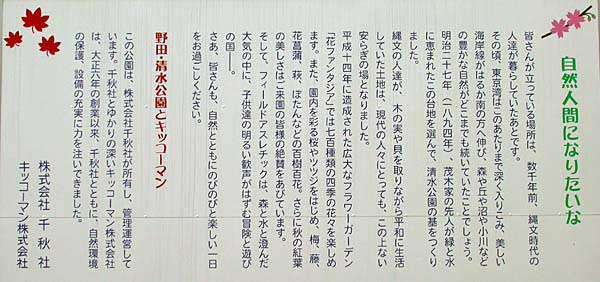 自然人間になりたいな
皆さんが立っている場所は、数千年前、縄文時代の
人達が暮らしていたあとです。
その頃、東京湾はこのあたりまで深く入りこみ、美しい
海岸線がはるか南の方へ伸び、森や丘や沼や小川など
の豊かな自然がどこまでも続いていたことでしょう。
明治二十七年(一八九四年)、茂木家の先人が緑と水
に恵まれたこの台地を選んで、清水公園の基をつくり
ました。
縄文の人達が、木の実や貝を取りながら平和に生活
していた土地は、現代の人々にとっても、この上ない
安らぎの場となりました。
平成十四年に造成された広大なフラワーガーデン
「花ファンタジア」では七百種類の四季の花々を楽しめ
ます。また、園内を彩る桜やツツジをはじめ、梅、藤、
花菖蒲、萩、ぼたんなどの百樹百花。さらに秋の紅葉
の美しさはご来園の皆様の絶賛をあびています。
そして、フィールドアスレチックは、森と水と澄んだ
大気の中に、子供達の明るい歓声がはずむ冒険と遊び
の国――。
さあ、皆さんも、自然とともにのびのびと楽しい一日
をお過ごしください。
野田・清水公園とキッコーマン
この公園は、株式会社千秋社が所有し、管理運営して
います。千秋社とゆかりの深いキッコーマン株式会社
は、大正六年の創業以来、千秋社とともに、自然環境
の保護、設備の充実に力を注いできました。
株式会社 千秋社
キッコーマン株式会社